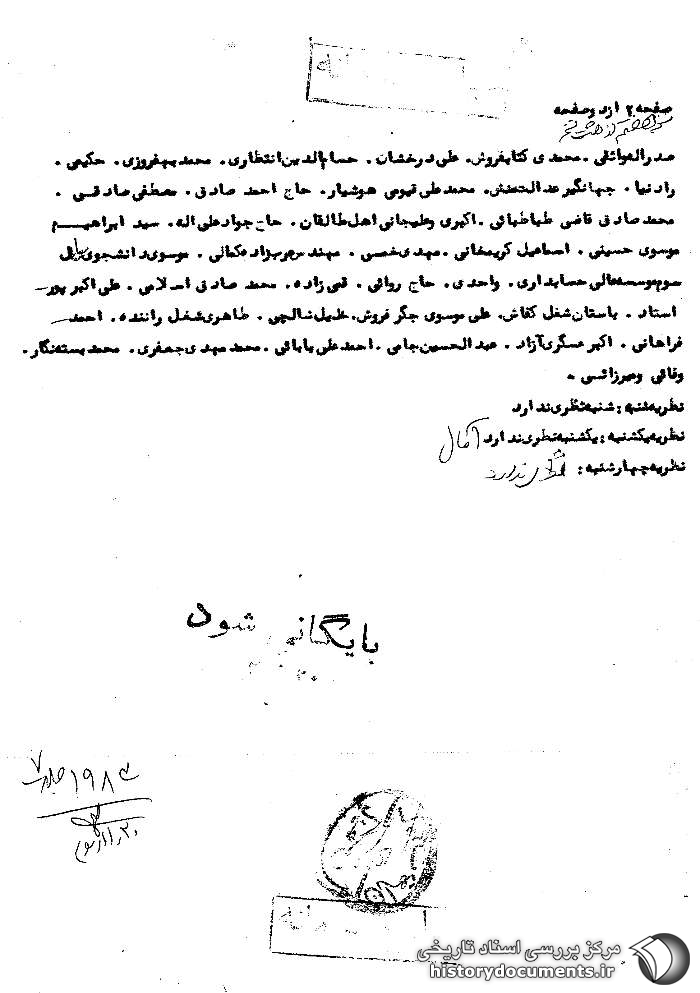 صفحه ۲ از دو صفحه
صدرالحواشلی . محمدی کتابفروش . علی درخشان . حسام‌الدین انتظاری . محمد بهفروزی . حکیمی .
رادنیا . جهانگیر عدالتمنش . محمد علی قیومی هوشیار . حاج احمد صادق . مصطفی صادقی .
محمد صادق قاضی طباطبائی . اکبری وعلیجانی اهل طالقان . حاج جواد علی اله . سید ابراهیم
موسوی حسینی . اسماعیل کریمخانی . مهدی خمسی . مهندس عربزاده کمانی . موسوی دانشجوی سال
سوم موسسه عالی حسابداری . واحدی . حاج روائی . قمی زاده . محمد صادق اسلامی . علی اکبر پور
استاد . باستان شغل کفاش . علی موسوی جگر فروش . خلیل شالچی . طاهری شغل راننده . احمد
فراهانی . اکبر عسگری آزاد . عبدالحسین جامی . احمد علی بابائی . محمد مهدی جعفری . محمد بسته نگار .
وفائی ومیرزائی -
نظریه شنبه : شنبه نظری ندارد
نظریه یکشنبه : یکشنبه نظری ندارد آمال
نظریه چهارشنبه : نظری ندارد
بایگانی شود
مرکز بررسی اسناد تاریخی
historydocuments.ir